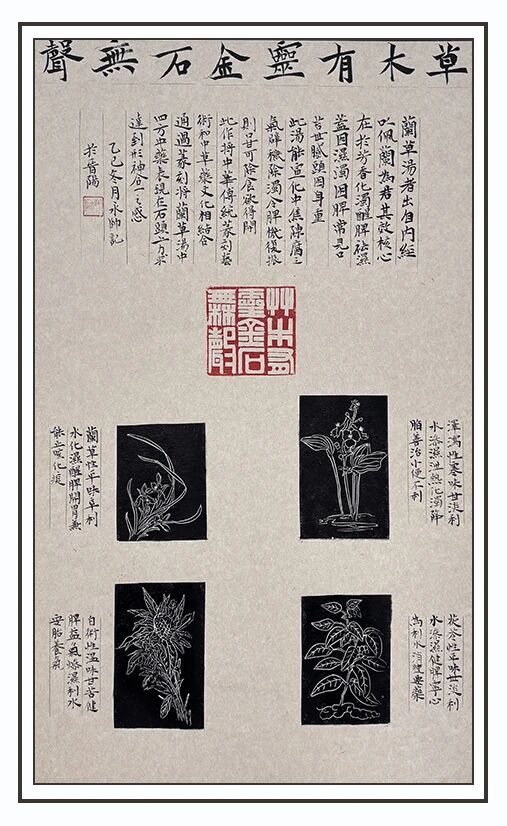 草木有靈金石無聲
蘭草湯者出自内經
以佩蘭為君其效核心
在於芳香化濁醒脾祛濕
蓋因濕濁困脾常見口
苦甘膩頭困身重
此湯能宣化中焦陳腐之
氣歸穢除濁令脾機復振
則口甘可除食欲得開
此作將中華傳統篆刻藝
術和中草藥文化相結合
通過篆刻將蘭草湯中
四方中藥表現在石頭上方寸
達到形神合一之感
乙巳冬月水帥記
於晉陽
草木有
靈金石
無聲
澤瀉性寒味甘淡利
水滲濕泄熱化濁降
脂善治小便不利
蘭草性平味辛利
水化濕醒脾開胃兼
能止咳化痰
茯苓性平味甘淡利
水滲濕健脾寧心
為利水消腫要藥
白術性温味甘苦健
脾益氣燥濕利水
安胎養氣